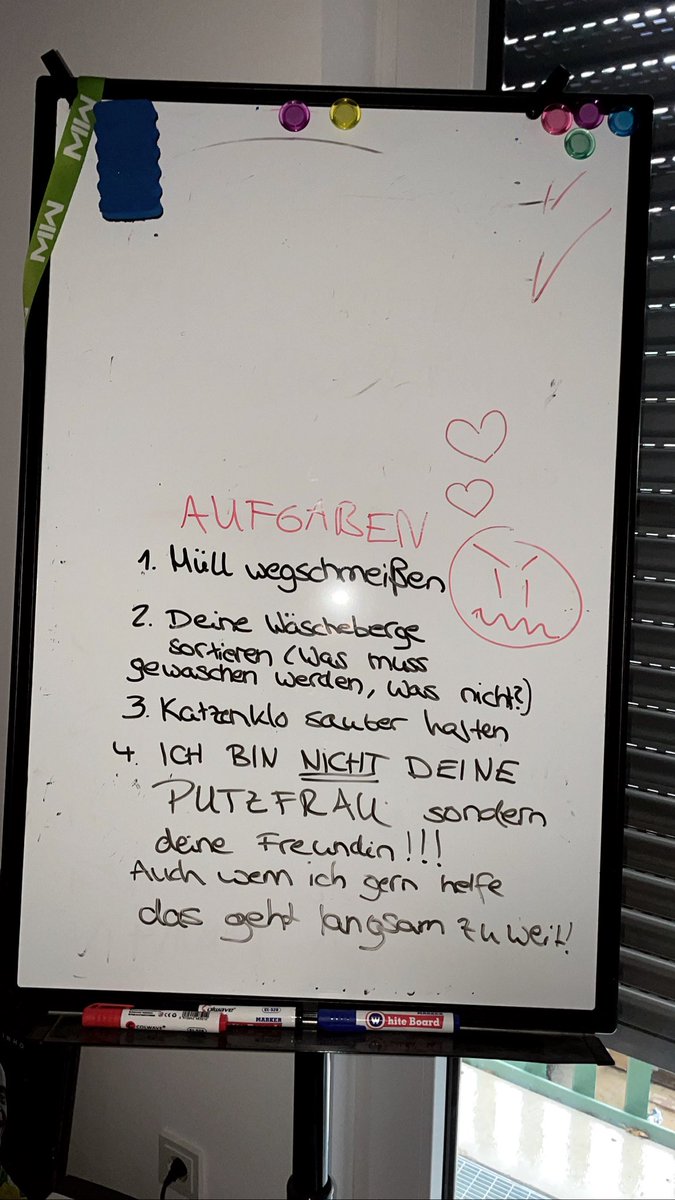 MIW
MIW
AUFGABEN
1. Müll wegschmeißen
2. Deine Wäscheberge
sortieren (Was muss
gewaschen werden, was nicht?)
3. Katzenklo sauber halten
4. ICH BIN NICHT DEINE
PUTZFRAU sondern
deine Freundin!!!
Auch wenn ich gern helfe
das geht langsam zu weit!
COLWAVE
Colwave
MARKER
W hite Board